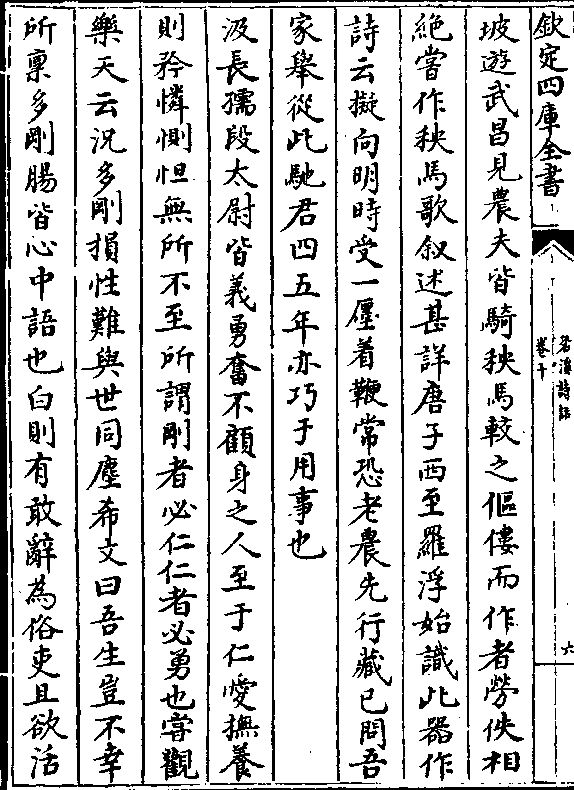 欽定四庫全書
䂬溪詩話
卷十
六
坡遊武昌見農夫皆騎秧馬較之傴僂而作者勞佚相
絶嘗作秧馬歌叙述甚詳唐子西至羅浮始識此器作
詩云擬向明時受一廛着鞭常恐老農先行藏已問吾
家舉從此馳君四五年亦巧于用事也
汲長孺段太尉皆義勇奮不顧身之人至于仁愛撫養
則矜憐惻怛無所不至所謂剛者必仁仁者必勇也甞觀
樂天云況多剛損性難與世同塵希文曰吾生豈不幸
所稟多剛腸皆心中語也白則有敢辭為俗吏且欲活